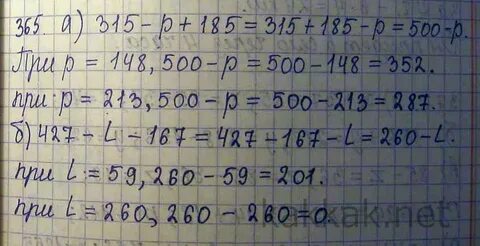 365. а) 315 - p + 185 = 315 + 185 - p = 500 - p.
При p = 148, 500 - p = 500 - 148 = 352.
при p = 213, 500 - p = 500 - 213 = 287.
б) 427 - L - 167 = 427 - 167 - L = 260 - L.
при L = 59, 260 - 59 = 201.
при L = 260, 260 - 260 = 0.
kakkak.net